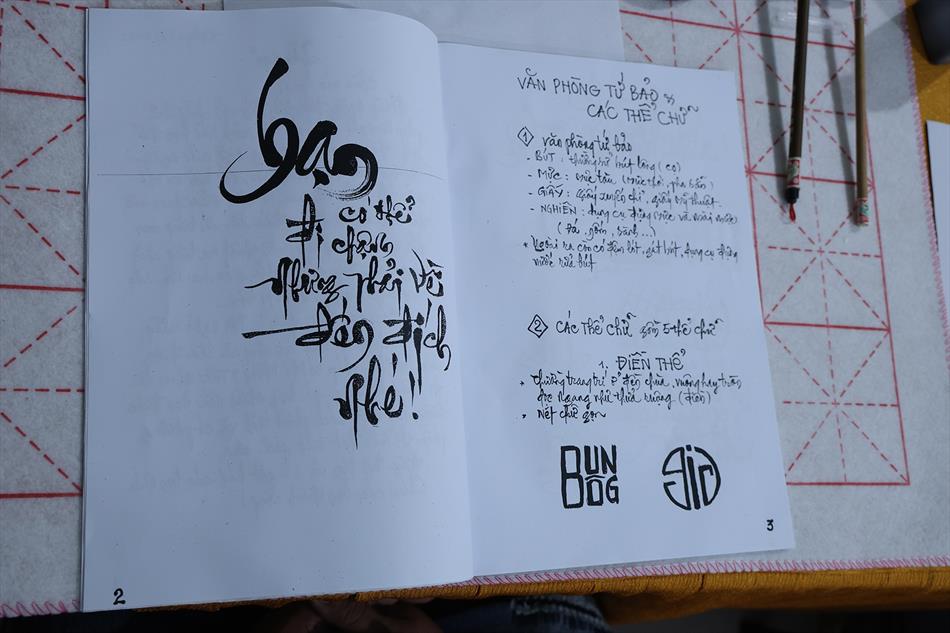 Bạn
có thể
đi chậm
nhưng phải về
đến đích
nhé!
2
VĂN PHÒNG TỨ BẢO
CÁC THỂ CHỮ
1 Văn phòng tứ bảo
- BÚT : thường sử bút lông (cọ)
- MỰC : mực tàu (mực thỏi, pha sẵn)
- GIẤY : giấy xuyến chỉ, giấy mỹ thuật.
- NGHIÊN : dụng cụ đựng mực và mài mực
(đá, gốm, sành...)
* Ngoài ra còn có đệm lót, gát bút, dụng cụ đựng
nước rửa bút
2 CÁC THỂ CHỮ gồm 5 thể chữ
1. ĐIỀN THỂ
* thường trang trí ở đền chùa, vuông hay tròn
dọc ngang như thửa ruộng (điền)
* Nét chữ gọn
BUN
ÔG
3